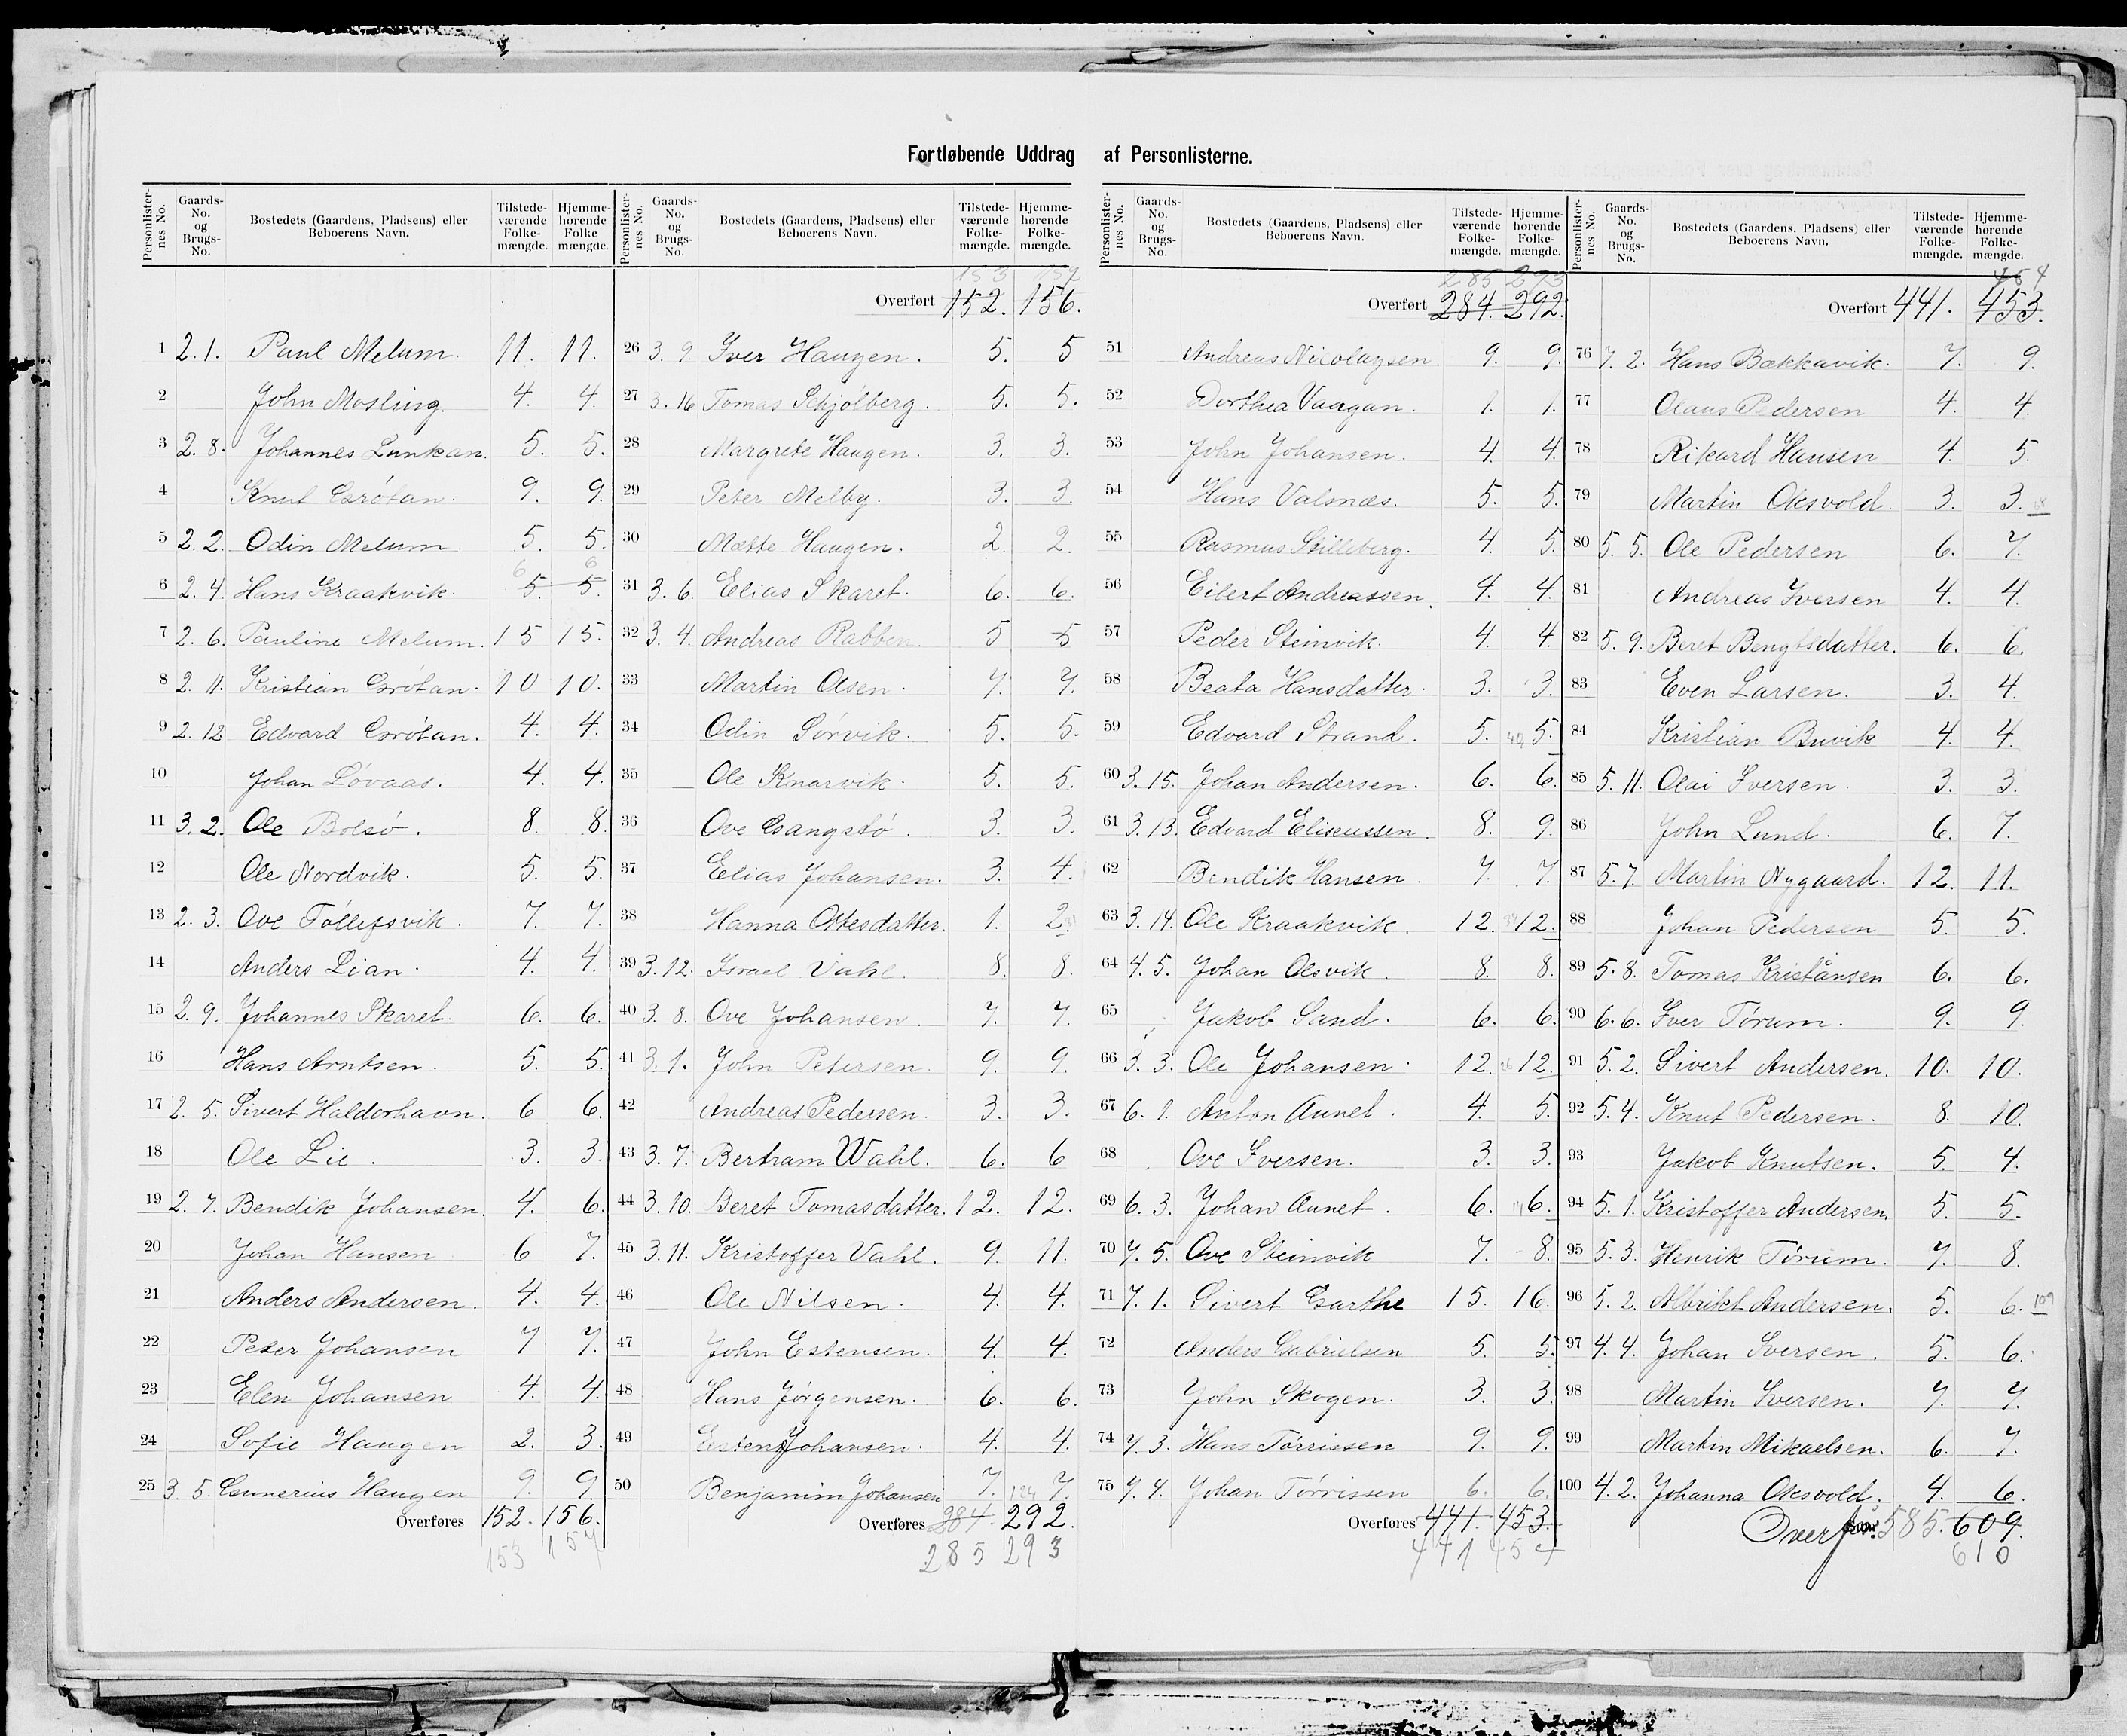 Fortløbende Uddrag af Personlisterne.
Personlisternes No. Gaards-No. og Brugs-No. Bostedets (Gaardens, Pladsens) eller Beboerens Navn. Tilstedeværende Folkemængde. Hjemmehørende Folkemængde.
1 2. 1. Paul Melum. 11. 11.
2 John Mosling. 4. 4.
3 2. 8. Johannes Lunkan. 5. 5.
4 Knut Grötan. 9. 9.
5 2. 2. Odin Melum. 5. 5.
6 6
6 2. 4. Hans Kraakvik. 5. 5.
7 2. 6. Pauline Melum. 15 15.
8 2. 11. Kristian Grötan. 10 10.
9 2. 12 Edvard Grötan. 4. 4.
10 Johan Lövaas. 4. 4.
11 3. 2. Ole Bolsö. 8. 8.
12 Ole Nordvik. 5. 5.
13 2. 3. Ove Töllefsvik. 7. 7.
14 Anders Lian. 4. 4.
15 2. 9. Johannes Skaret. 6. 6.
16 Hans Arntsen. 5. 5.
17 2. 5. Sivert Halderhavn. 6 6.
18 Ole Lie. 3. 3.
19 2. 7. Bendik Johansen. 4. 6.
20 Johan Hansen 6 7.
21 Anders Andersen. 4. 4.
22 Peter Johansen 7 7.
23 Elen Johansen 4. 4.
24 Sofie Haugen 2. 3.
25 3. 5. Gunnerius Haugen 9. 9.
Overføres 152. 156.
153 157
Personlisternes No. Gaards-No. og Brugs-No. Bostedets (Gaardens, Pladsens) eller Beboerens Navn. Tilstedeværende Folkemængde. Hjemmehørende Folkemængde.
153 157
Overført 152. 156.
26 3. 9. Iver Haugen. 5. 5
27 3. 16 Tomas Schjölberg. 5. 5.
28 Margrete Haugen. 3. 3.
29 Peter Melby. 3. 3.
30 Mette Haugen. 2. 2.
31 3. 6. Elias Skaret. 6. 6.
32 3. 4. Andreas Rabben. 5 5
33 Martin Olsen. 7. 7.
34 Odin Sörvik. 5. 5.
35 Ole Knarvik. 5. 5.
36 Ove Gangstö. 3. 3.
37 Elias Johansen. 3. 4.
38 Hanna Ottesdatter. 1. 2.
39 3. 12. Israel Vahl. 8. 8.
40 3. 8. Ove Johansen. 7. 7.
41 3. 1. John Petersen. 9. 9.
42 Andreas Pedersen. 3. 3.
43 3. 7. Bertram Wahl. 6. 6
44 3. 10. Beret Tomasdatter. 12. 12.
45 3. 11. Kristoffer Vahl. 9. 11.
46 Ole Nilsen. 4. 4.
47 John Estensen. 4. 4.
48 Hans Jörgensen. 6. 6.
49 Esten Johansen. 4. 4.
50 Benjamin Johansen 7. 7.
Overføres 284. 292.
285 293
Personlisternes No. Gaards-No. og Brugs-No. Bostedets (Gaardens, Pladsens) eller Beboerens Navn. Tilstedeværende Folkemængde. Hjemmehørende Folkemængde.
285 293
Overført 284. 292.
51 Andreas Nicolaysen. 9. 9.
52 Dorthea Vaagan. 1. 1.
53 John Johansen. 4. 4.
54 Hans Valsnæs. 5. 5.
55 Rasmus Stilleberg. 4. 5.
56 Eilert Andreassen. 4. 4.
57 Peder Steinvik. 4. 4.
58 Beata Hansdatter. 3. 3.
59 Edvard Strand. 5. 5.
60 3. 15. Johan Andersen. 6. 6.
61 3. 13. Edvard Eliseussen. 8. 9.
62 Bendik Hansen. 7. 7.
63 3. 14. Ole Kraakvik. 12. 12.
64 4. 5. Johan Olsvik. 8. 8.
65 Jakob Sand. 6. 6.
66 3. 3. Ole Johansen. 12. 12.
67 6. 1. Anton Aunet. 4. 5.
68 Ove Iversen. 3. 3.
69 6. 3. Johan Aunet. 6. 6.
70 7. 5. Ove Steinvik 7. 8.
71 7. 1. Sivert Garthe 15. 16.
72 Anders Gabrielsen 5. 5.
73 John Skogen. 3. 3.
74 7. 3. Hans Tørrissen 9. 9.
75 7. 4. Johan Törrissen 6. 6.
Overføres 441. 453.
441 454
Personlisternes No. Gaards-No. og Brugs-No. Bostedets (Gaardens, Pladsens) eller Beboerens Navn. Tilstedeværende Folkemængde. Hjemmehørende Folkemængde.
454
Overført 441. 453.
76 7. 2. Hans Bækkavik. 7. 9.
77 Olaus Pedersen 4. 4.
78 Rikard Hansen 4. 5.
79 Martin Oksvold. 3. 3.
80 5. 5. Ole Pedersen 6. 7.
81 Andreas Iversen 4. 4.
82 5. 9. Beret Bengtsdatter. 6. 6.
83 Even Larsen. 3. 4.
84 Kristian Buvik 4. 4.
85 5. 11. Olai Iversen. 3. 3.
86 John Lund. 6. 7.
87 5. 7. Martin Nygaard. 12. 11.
88 Johan Pedersen 5. 5.
89 5. 8. Tomas Kristiansen 6. 6.
90 6. 6. Iver Törum. 9. 9.
91 5. 2. Sivert Andersen. 10. 10.
92 5. 4. Knut Pedersen. 8. 10.
93 Jakob Knutsen. 5. 4.
94 5. 1. Kristoffer Andersen. 5. 5.
95 5. 3. Henrik Törum. 7. 8.
96 5. 2. Albrikt Andersen. 5. 6. 109
97 4. 4. Johan Iversen. 5. 6.
98 Martin Iversen. 7. 7.
99 Martin Mikaelsen. 6. 7.
100 4. 2. Johanna Oksvold. 4. 6.
Overf. 585. 609.
610